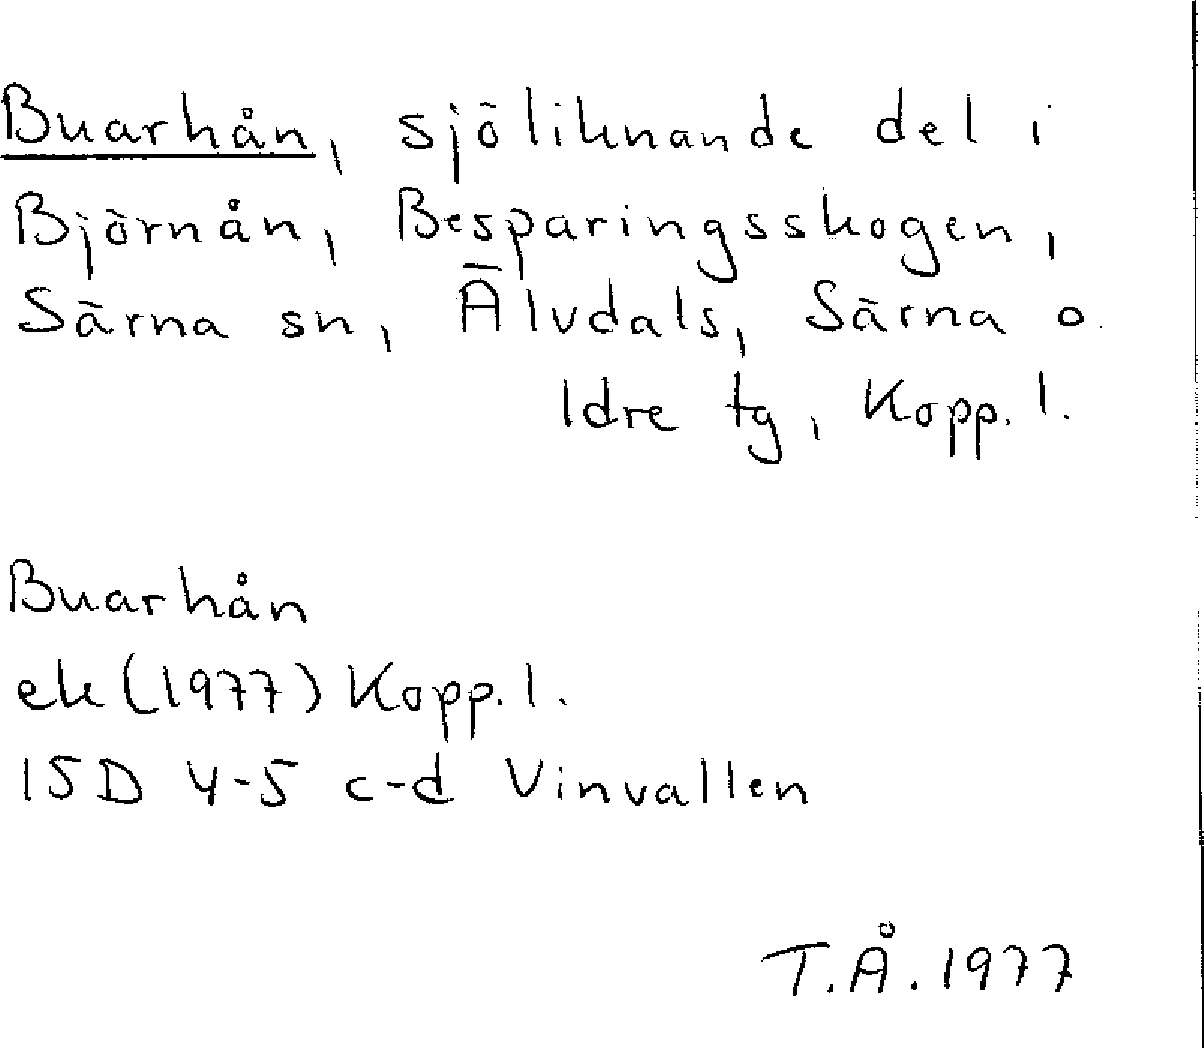 Buarhån, sjöliknande del i
Björnån, Besparingsskogen,
Särna sn, Älvdals, Särna o.
Idre tg, Kopp. l.
Buarhån
ek (1977) Kopp. l.
15D 4-5 c-d Vinvallen
T.Å. 1977